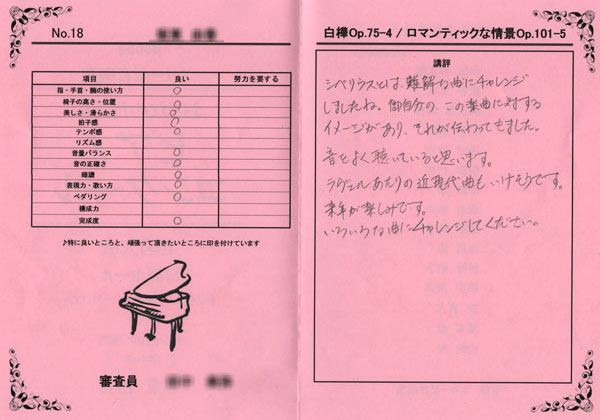 No.18
項目 良い 努力を要する
指・手首・腕の使い方 ○
椅子の高さ・位置 ○
美しさ・滑らかさ ○
拍子感 ○
テンポ感 ○
リズム感
音量バランス ○
音の正確さ ○
暗譜 ○
表現力・歌い方 ○
ペダリング ○
構成力
完成度 ○
♪特に良いところと、頑張って頂きたいところに印を付けています
審査員
白樺Op.75-4 / ロマンティックな情景Op.101-5
講評
シベリウスとは、難解な曲にチャレンジ
しましたね。御自分の、この楽曲に対する
イメージがあり、それが伝わってきました。
音をよく聴いていると思います。
ラヴェルあたりの近現代曲もいけそうです。
来年が楽しみです。
いろいろな曲にチャレンジしてください。